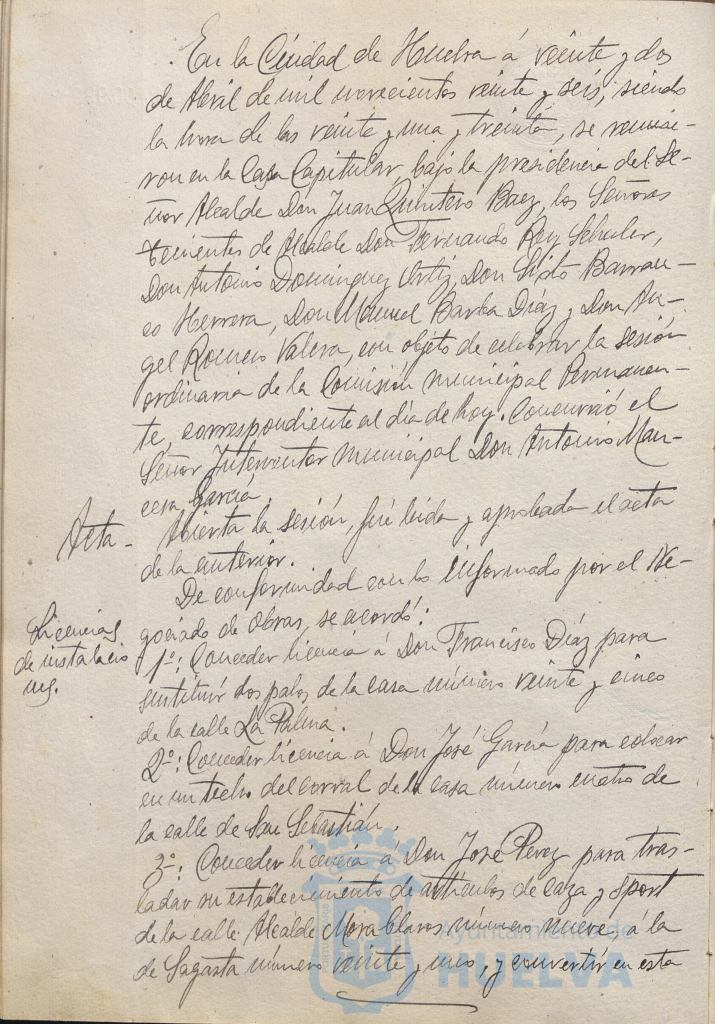 En la Ciudad de Huelva á veinte y dos
de Abril de mil novecientos veinte y seis, siendo
la hora de las veinte y una y treinta, se reunie-
ron en la Casa Capitular, bajo la presidencia del Se-
ñor Alcalde Don Juan Quintero Baez, los Señores
Tenientes de Alcalde Don Fernando Rey Schuler,
Don Antonio Dominguez Ortiz, Don Sixto Barran-
co Herrera, Don Manuel Barba Díaz y Don An-
gel Romero Valera, con objeto de celebrar la sesión
ordinaria de la Comisión municipal Permanen-
te, correspondiente al día de hoy. Concurrió el
Señor Interventor municipal Don Antonio Man-
cera García.
Acta - Abierta la sesión, fué leida y aprobada el acta
de la anterior.
De conformidad con lo informado por el Ne-
Licencias
gociado de Obras, se acordó:
de instalacio
nes.
1º: Conceder licencia á Don Francisco Díaz para
sustituir dos palos de la casa número veinte y cinco
de la calle La Palma.
2º: Conceder licencia á Don José García para colocar
en un techo del corral de la casa número cuatro de
la calle de San Sebastián.
3º: Conceder licencia á Don José Perez para tras-
ladar su establecimiento de artículos de caza y sport
de la calle Alcalde Mora Claros número nueve, á la
de Sagasta número veinte y uno, y convertir en esta
Ayuntamiento de
HUELVA